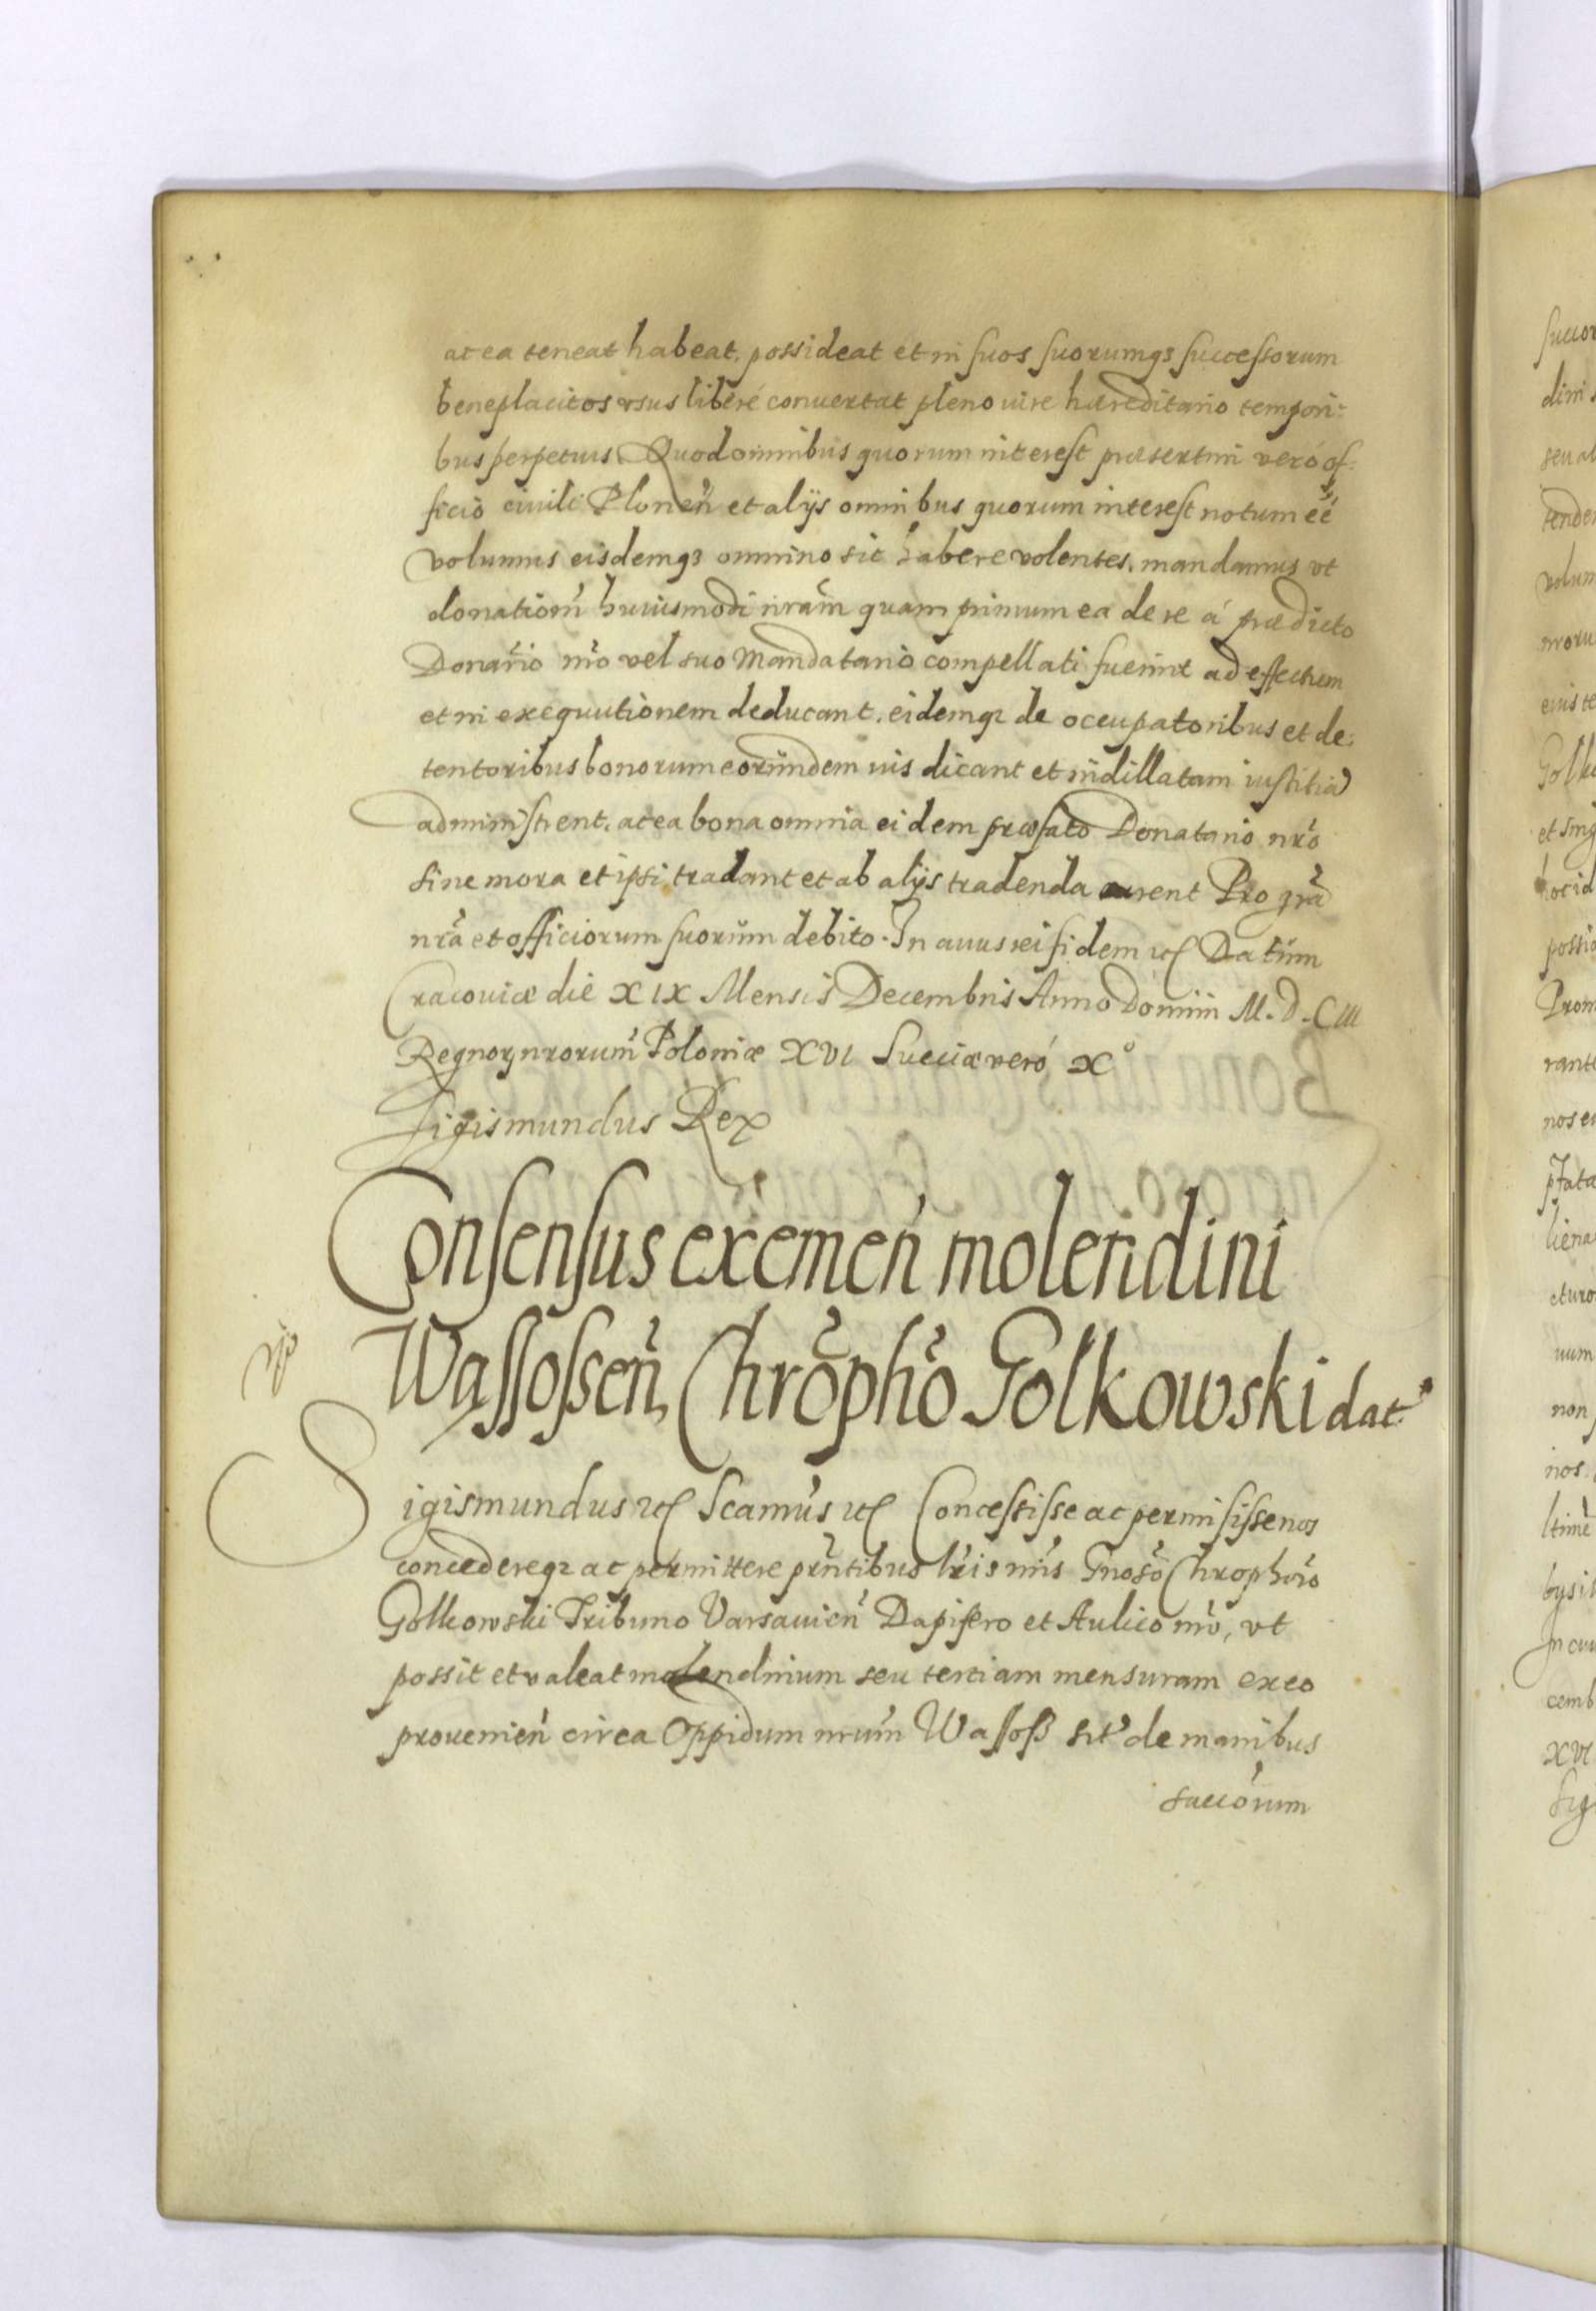 ac ea teneat habeat, possideat et in suos suorumq3 successorum
beneplacitos usus liberé conuertat pleno iure hæreditario tempori=
bus perpetuis. Quod omnibus quorum interest præsertim veró of=
ficio ciuili Plonen̄ et alijs omnibus quorum interest notum ēé
volumus eisdemq3 omnino sic habere volentes, mandamus vt
donatiom̄ huiusmodi nram̄ quam primum ea de re á prædicto
Donar̄io nr̄o vel suo Mandatario compellati fuerint ad effectum
et in exequutionem deducant, eidemq3 de occupatoribus et de=
tentoribus bonorum eorundem ius dicant et indillatam iustitiā
administrent, ac ea bona omnia eidem præfato Donatario nr̄o
sine mora et ipsi tradant et ab alijs tradenda curent Pro gr̄a
nr̄a et officiorum suorum debito. In cuius rei fidem etc Datum
Cracouiæ die XIX Mensis Decembris Anno Domini M. D. CIII
Regnor nrorum̄ Poloniæ XVI Sueciæ veró X°
Sigismundus Rex
Consensus exemen̄ molendini
Wassossen̄, Chrōphō Golkowski dat.
Sigismundus etc Scamūs etc Concessisse ac permisisse nos
concedereq3 ac permittere prn̄tibus lr̄is nr̄is Gnosō Chrophorō
Golkowski Tribuno Varsauien̄ Dapifero et Aulico nr̄o, vt
possit et valeat molendinum seu tertiam mensuram ex eo
prouenien̄ circa Oppidum nrum̄ Wassoß sit̄ de manibus